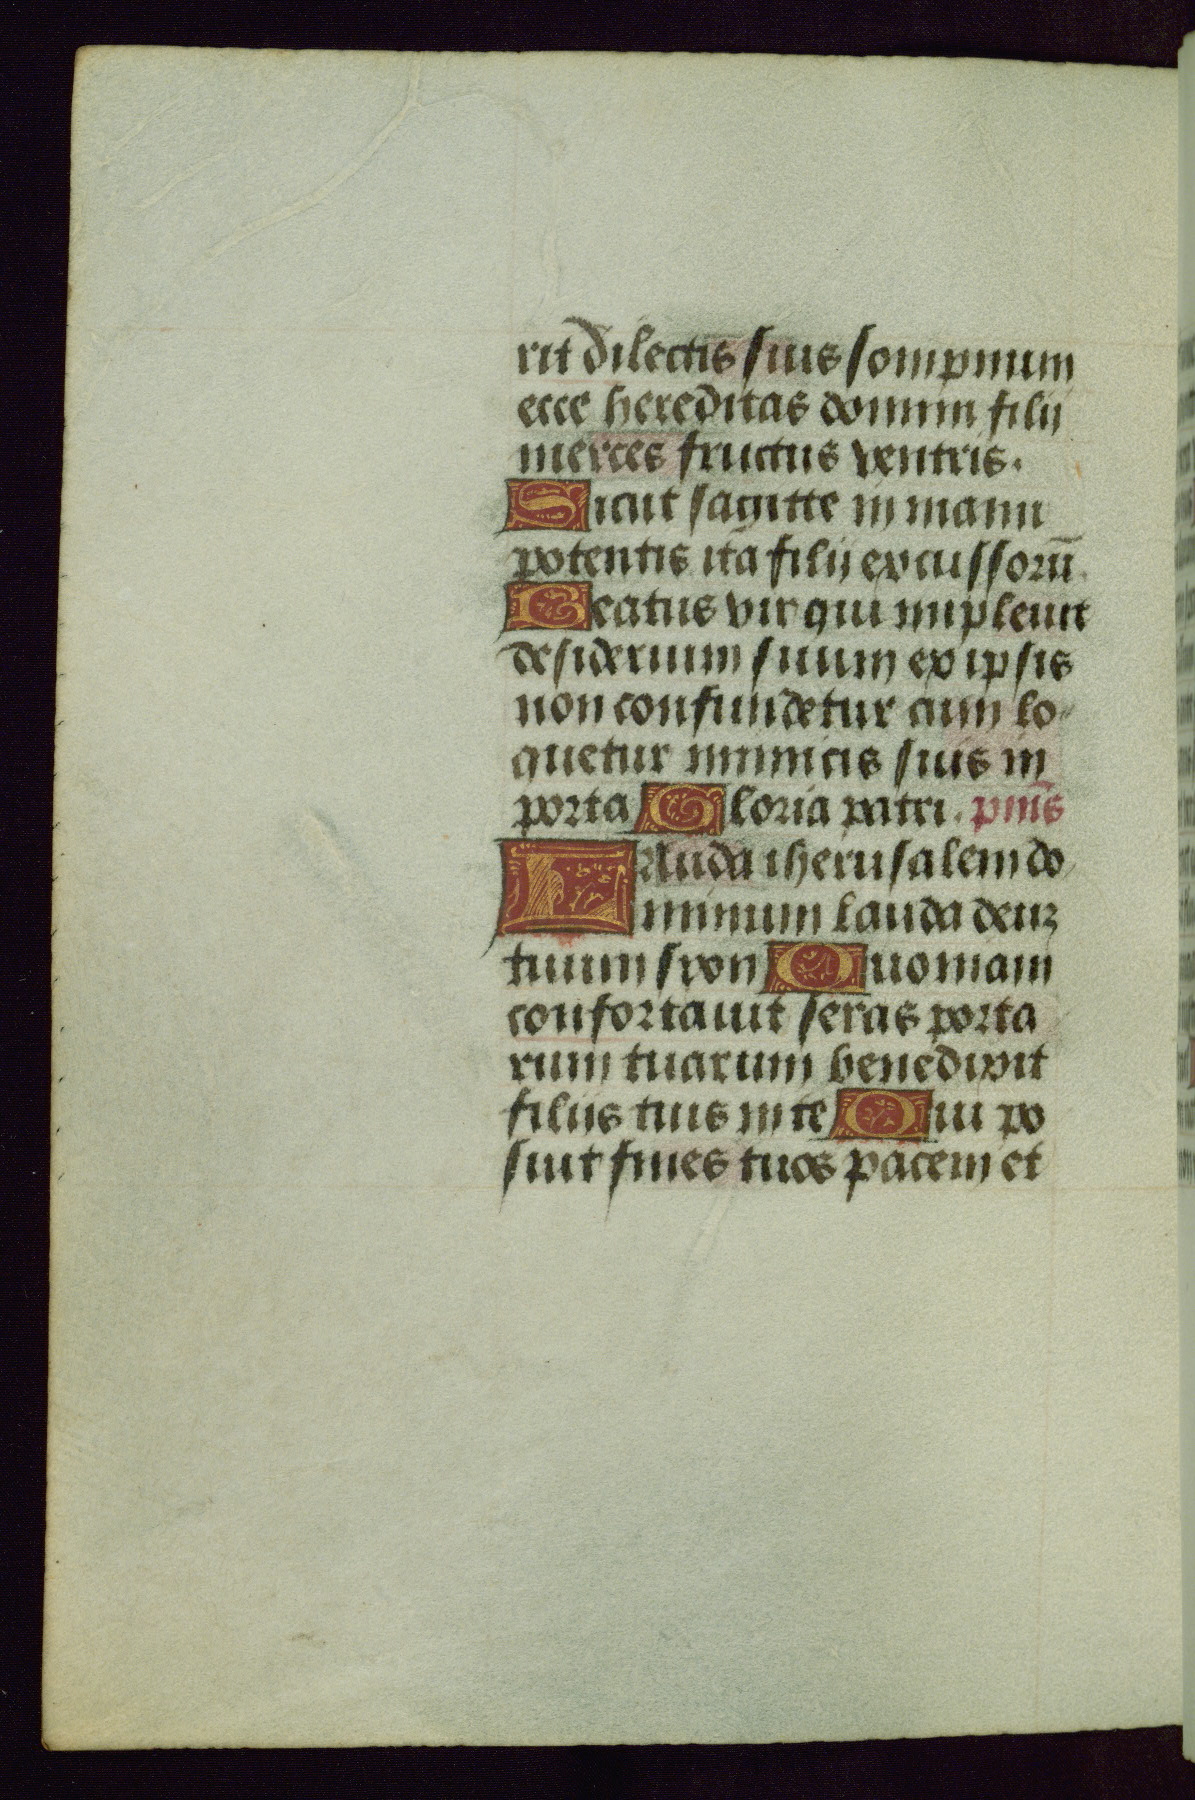 rit dilectis suis sompnum
ecce hereditas domini filij
merces fructus ventris.
Sicut sagitte in manu
potentis ita filij excussorū.
Beatus vir qui impleuit
desiderium suum ex ipsis
non confundetur cum lo
quetur inimicis suis in
porta Gloria patri. psm̄s
Lauda iherusalem do
minum lauda deuz
tuum syon Quoniam
confortauit seras porta
rum tuarum benedixit
filijs tuis in te Qui po
suit fines tuos pacem et